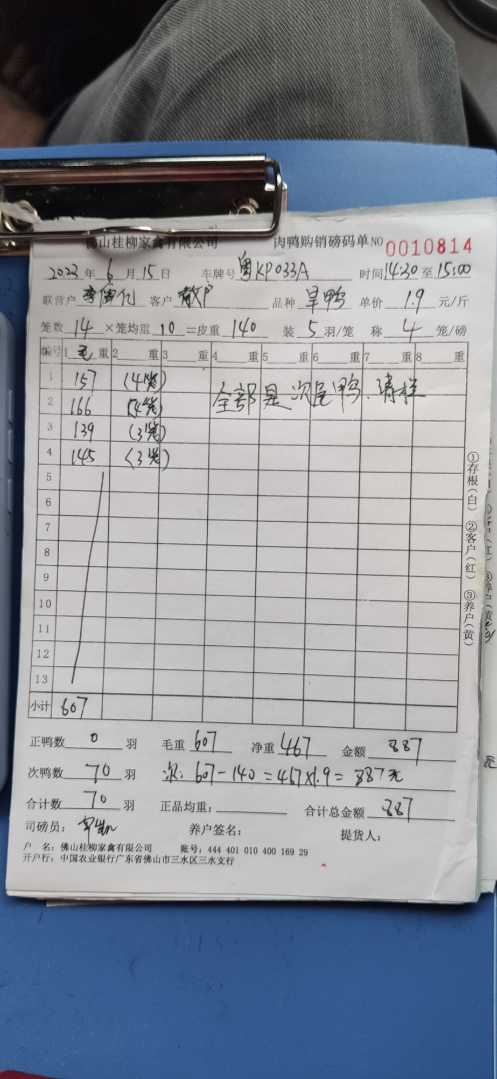 佛山桂柳家禽有限公司 肉鸭购销磅码单 NO 0010814
2023年 6月 15日 车牌号 粤KP033A 时间 14:30 至 15:00
联营户 客户 散户 品种 旱鸭 单价 1.9 元/斤
笼数 14 ×笼均重 10 =皮重 140 装 5 羽/笼 称 4 笼/磅
编号 1 毛 重 2 重 3 重 4 重 5 重 6 重 7 重 8 重
1 157 (4笼) 全部是次品鸭、清栏
2 166 (4笼)
3 139 (3笼)
4 145 (3笼)
5
6
7
8
9
10
11
12
13
小计 607
正鸭数 0 羽 毛重 607 净重 467 金额 887
次鸭数 70 羽 次: 607-140=467×1.9=887元
合计数 70 羽 正品均重: 合计总金额 887
司磅员: 养户签名: 提货人:
户 名: 佛山桂柳家禽有限公司 账号: 444 401 010 400 169 29
开户行: 中国农业银行广东省佛山市三水区三水支行
①存根(白) ②客户(红) ③养户(黄)